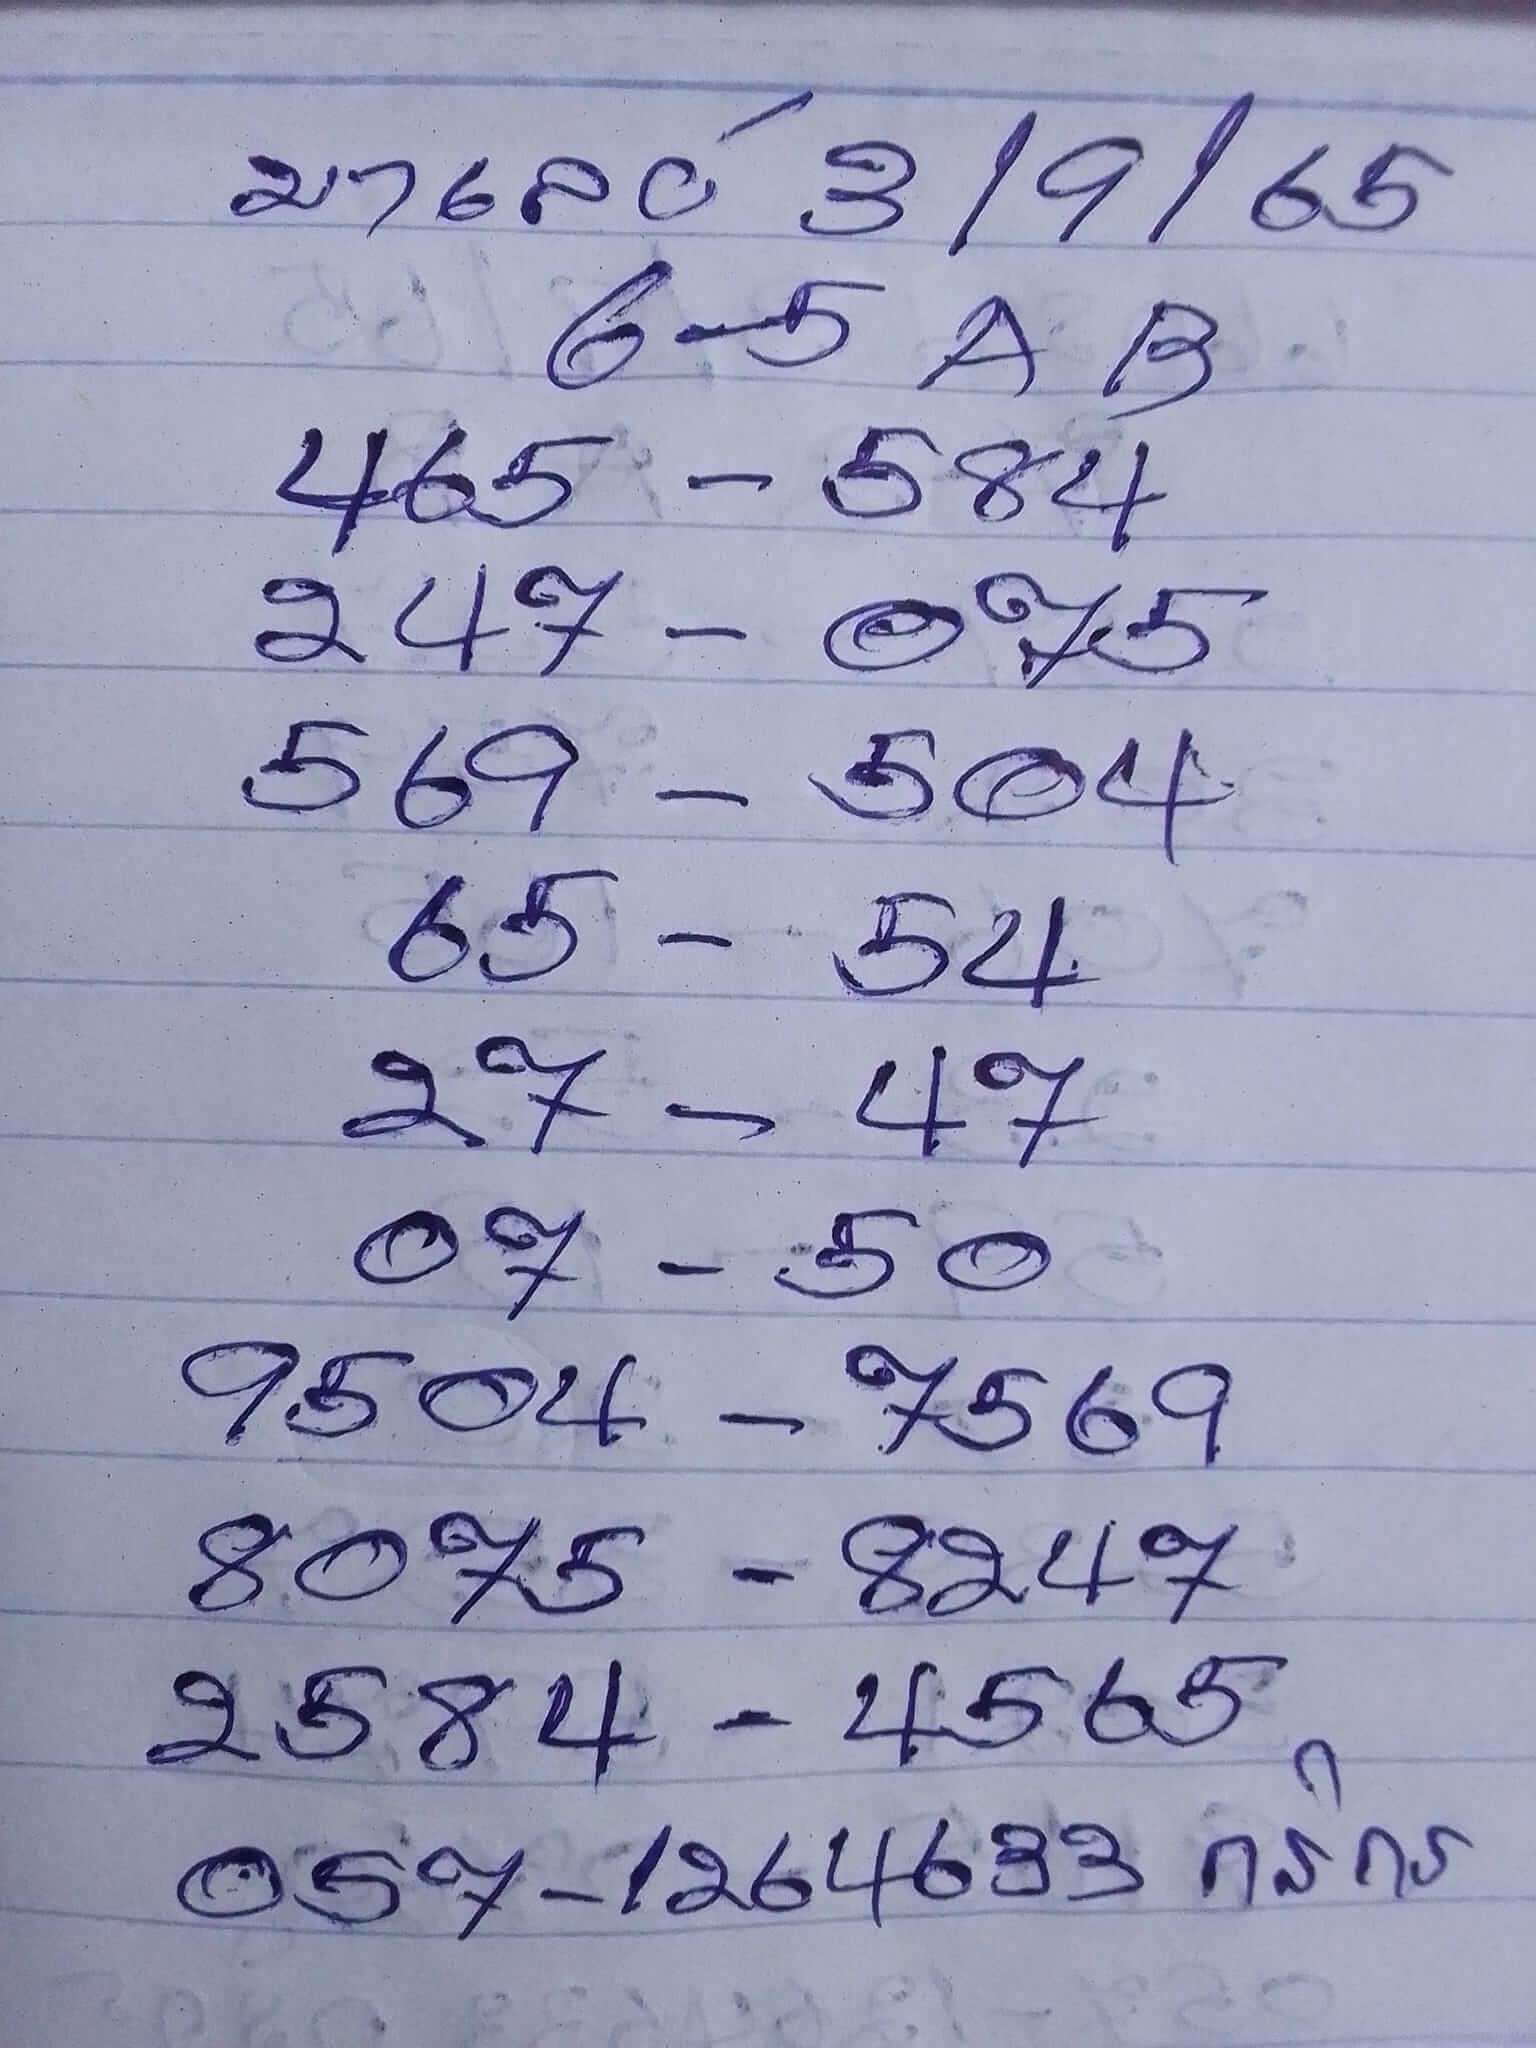 มาเลย์ 3/9/65
6-5 A B
465 - 584
247 - 075
569 - 504
65 - 54
27 - 47
07 - 50
9504 - 7569
8075 - 8247
2584 - 4565
057-1264633